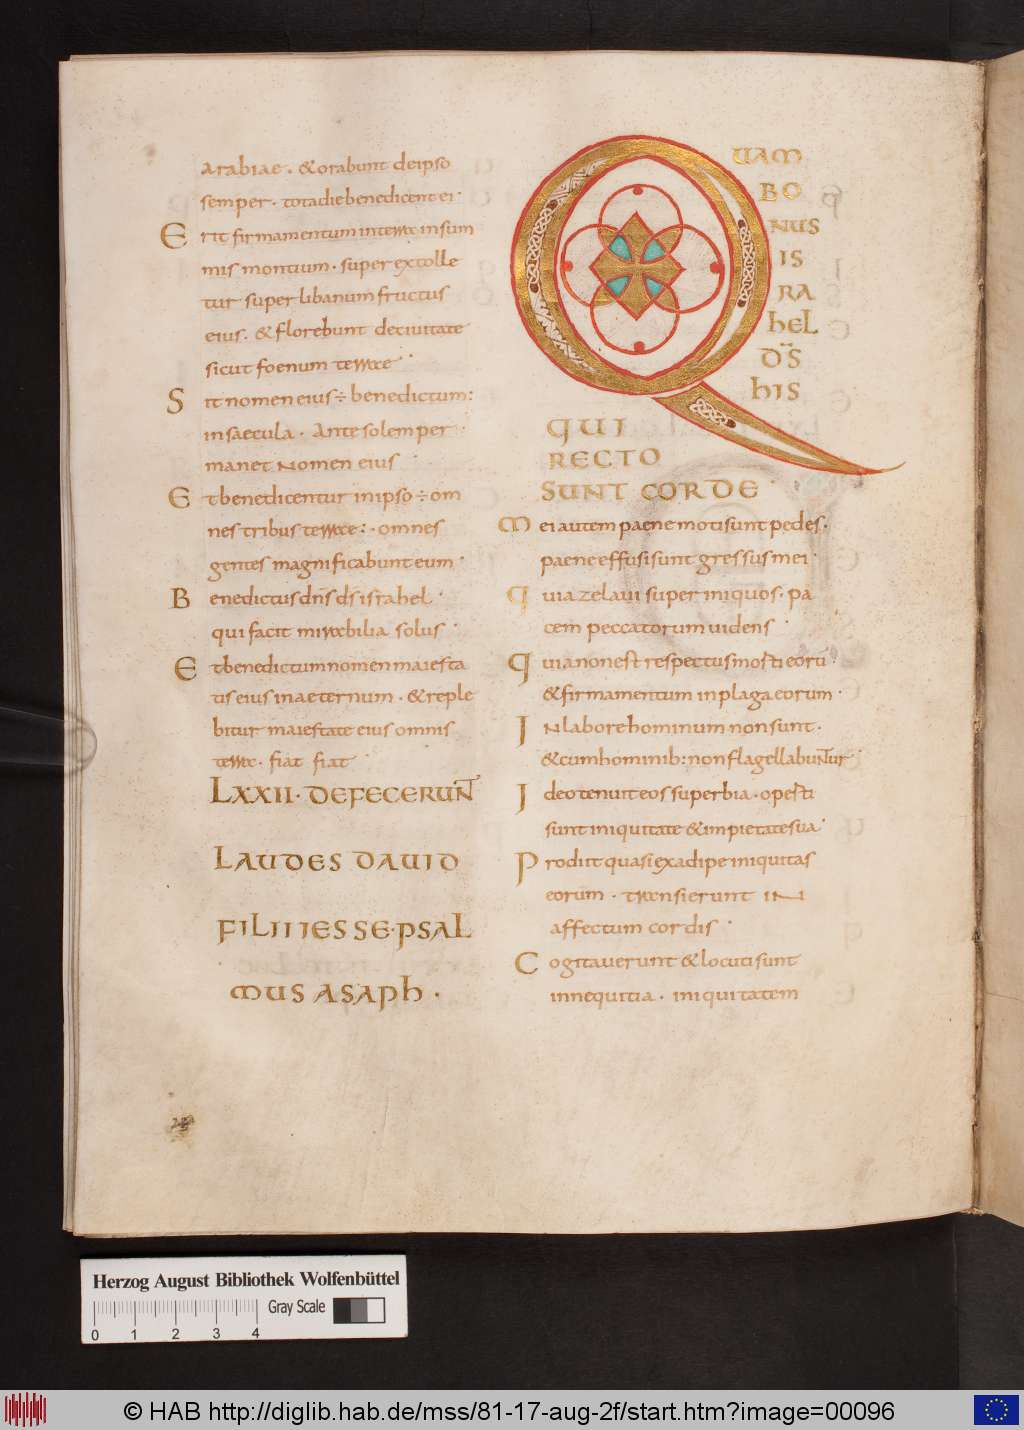 Arabiae . & orabunt deipso
semper · totadie benedicent ei ·
Erit firmamentum interra insum
mis montium · super extolle
tur super libanum fructus
eius . & florebunt deciuitate
sicut foenum terrae ·
Sit nomen eius ÷ benedictum :
insaecula . Ante solem per
manet Nomen eius ·
Et benedicentur inipso ÷ om
nes tribus terrae : · omnes
gentes magnificabunt eum ·
Benedictus dn̄s ds israhel ·
qui facit mirabilia solus ·
Et benedictum nomen maiesta
tis eius inaeternum · & reple
bitur maiestate eius omnis
terra · fiat fiat ·
LXXII · DEFECERUNT
LAUDES DAUID
FILII IESSE · PSAL
MUS ASAPH ·
QUAM
BO
NUS
IS
RA
HEL
D̄S
HIS
QUI
RECTO
SUNT CORDE ·
Mei autem paene moti sunt pedes ·
paene effusi sunt gressus mei ·
Quia zelaui super iniquos · pa
cem peccatorum uidens ·
Quia non est respectus mosti eorū ·
& firmamentum in plaga eorum ·
IN labore hominum non sunt ·
& cum hominib: non flagellabuntur ·
Ideo tenuit eos superbia · operti
sunt iniquitate & impietate sua ·
Prodiit quasi exadipe iniquitas
eorum · transierunt IN
affectum cordis ·
Cogitauerunt & locuti sunt
innequitia · iniquitatem
Herzog August Bibliothek Wolfenbüttel
Gray Scale
0 1 2 3 4
© HAB http://diglib.hab.de/mss/81-17-aug-2f/start.htm?image=00096